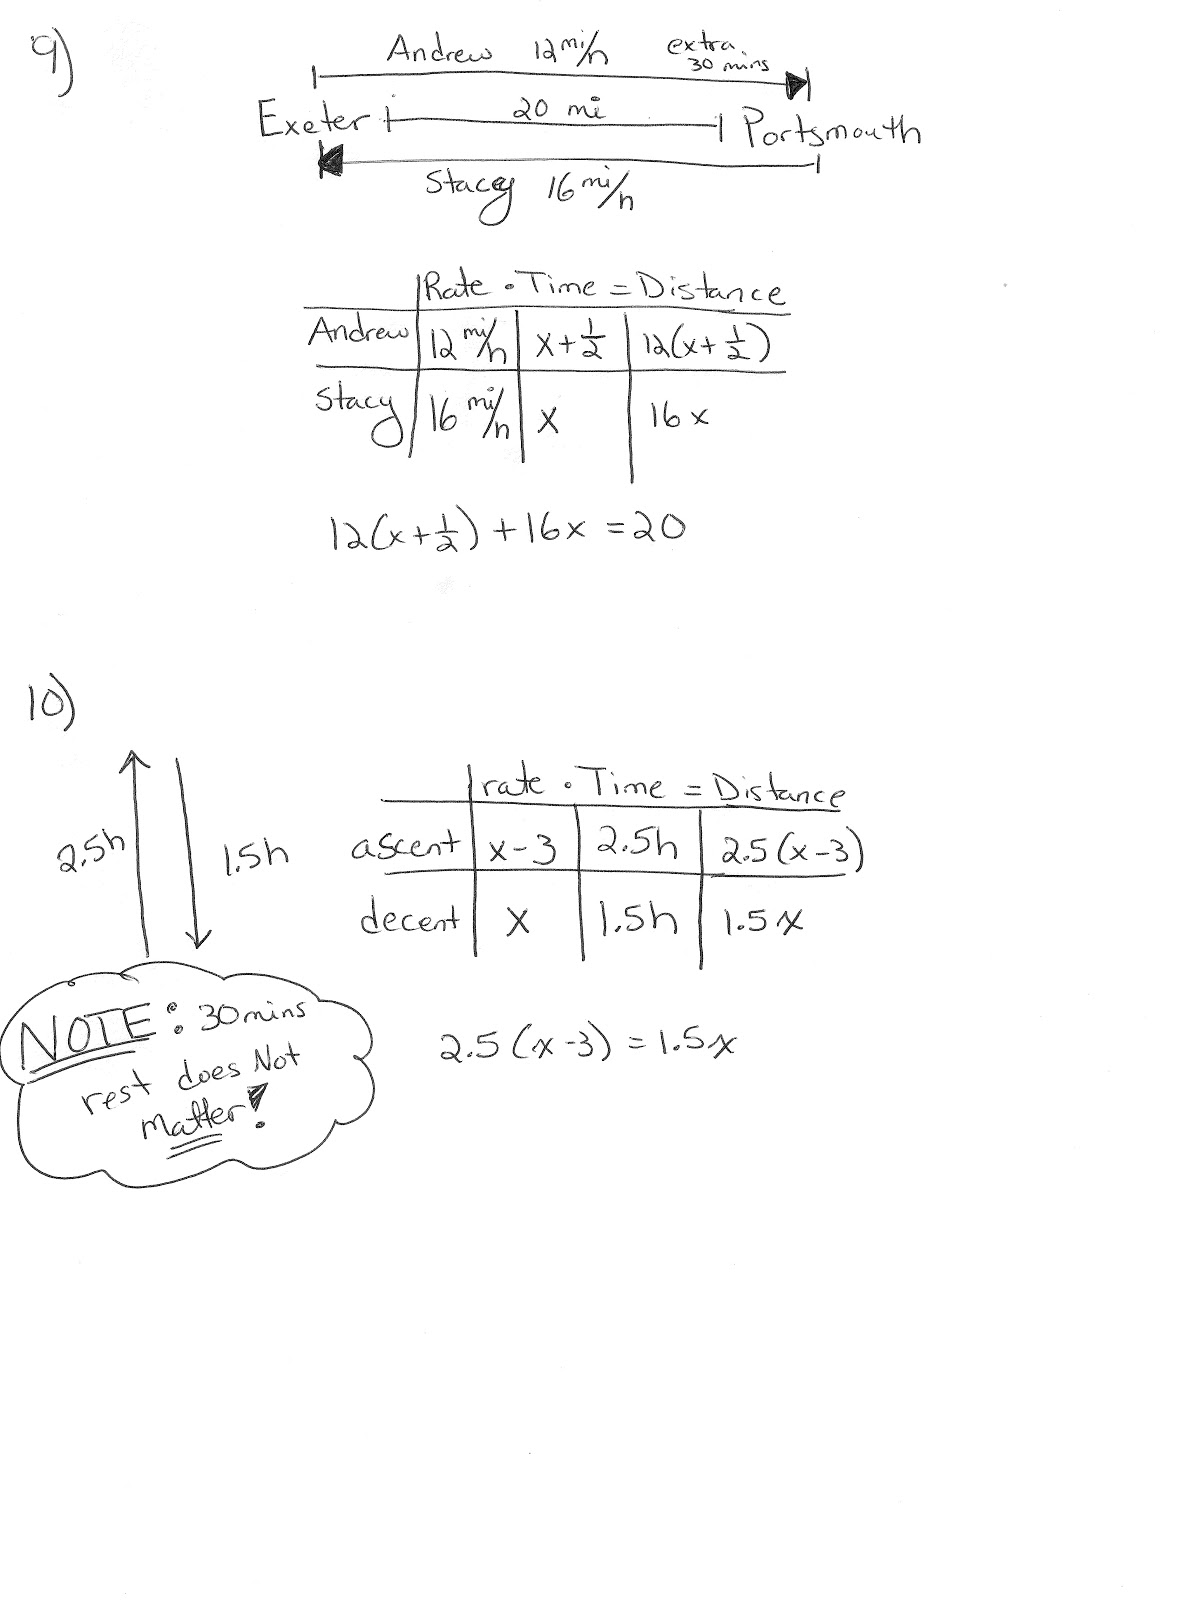 9)
Andrew 12 mi/h extra 30 mins
Exeter 20 mi Portsmouth
Stacey 16 mi/h
Rate • Time = Distance
Andrew 12 mi/h x + 1/2 12(x + 1/2)
Stacy 16 mi/h x 16x
12(x + 1/2) + 16x = 20
10)
2.5h 1.5h
rate • Time = Distance
ascent x - 3 2.5h 2.5(x - 3)
decent x 1.5h 1.5x
NOTE: 30 mins
rest does Not
Matter!
2.5(x - 3) = 1.5x